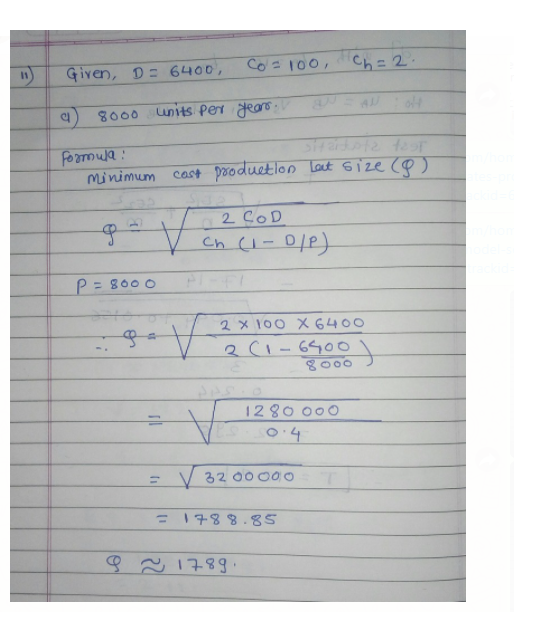 11) Given, D = 6400, Co = 100, Ch = 2.
a) 8000 units per year.
Formula:
Minimum cost production lot size (Q)
Q = √(2 CoD / Ch (1 - D/P))
P = 8000
∴ Q = √(2 × 100 × 6400 / 2 (1 - 6400/8000))
= √(1280 000 / 0.4)
= √3200000
= 1788.85
Q ≈ 1789.